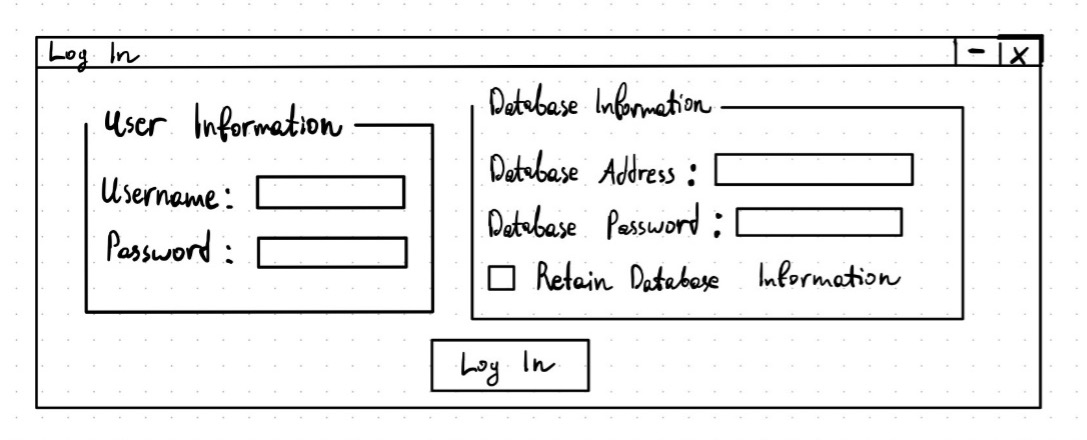 Log In - X
User Information
Username:
Password:
Database Information
Database Address:
Database Password:
Retain Database Information
Log In